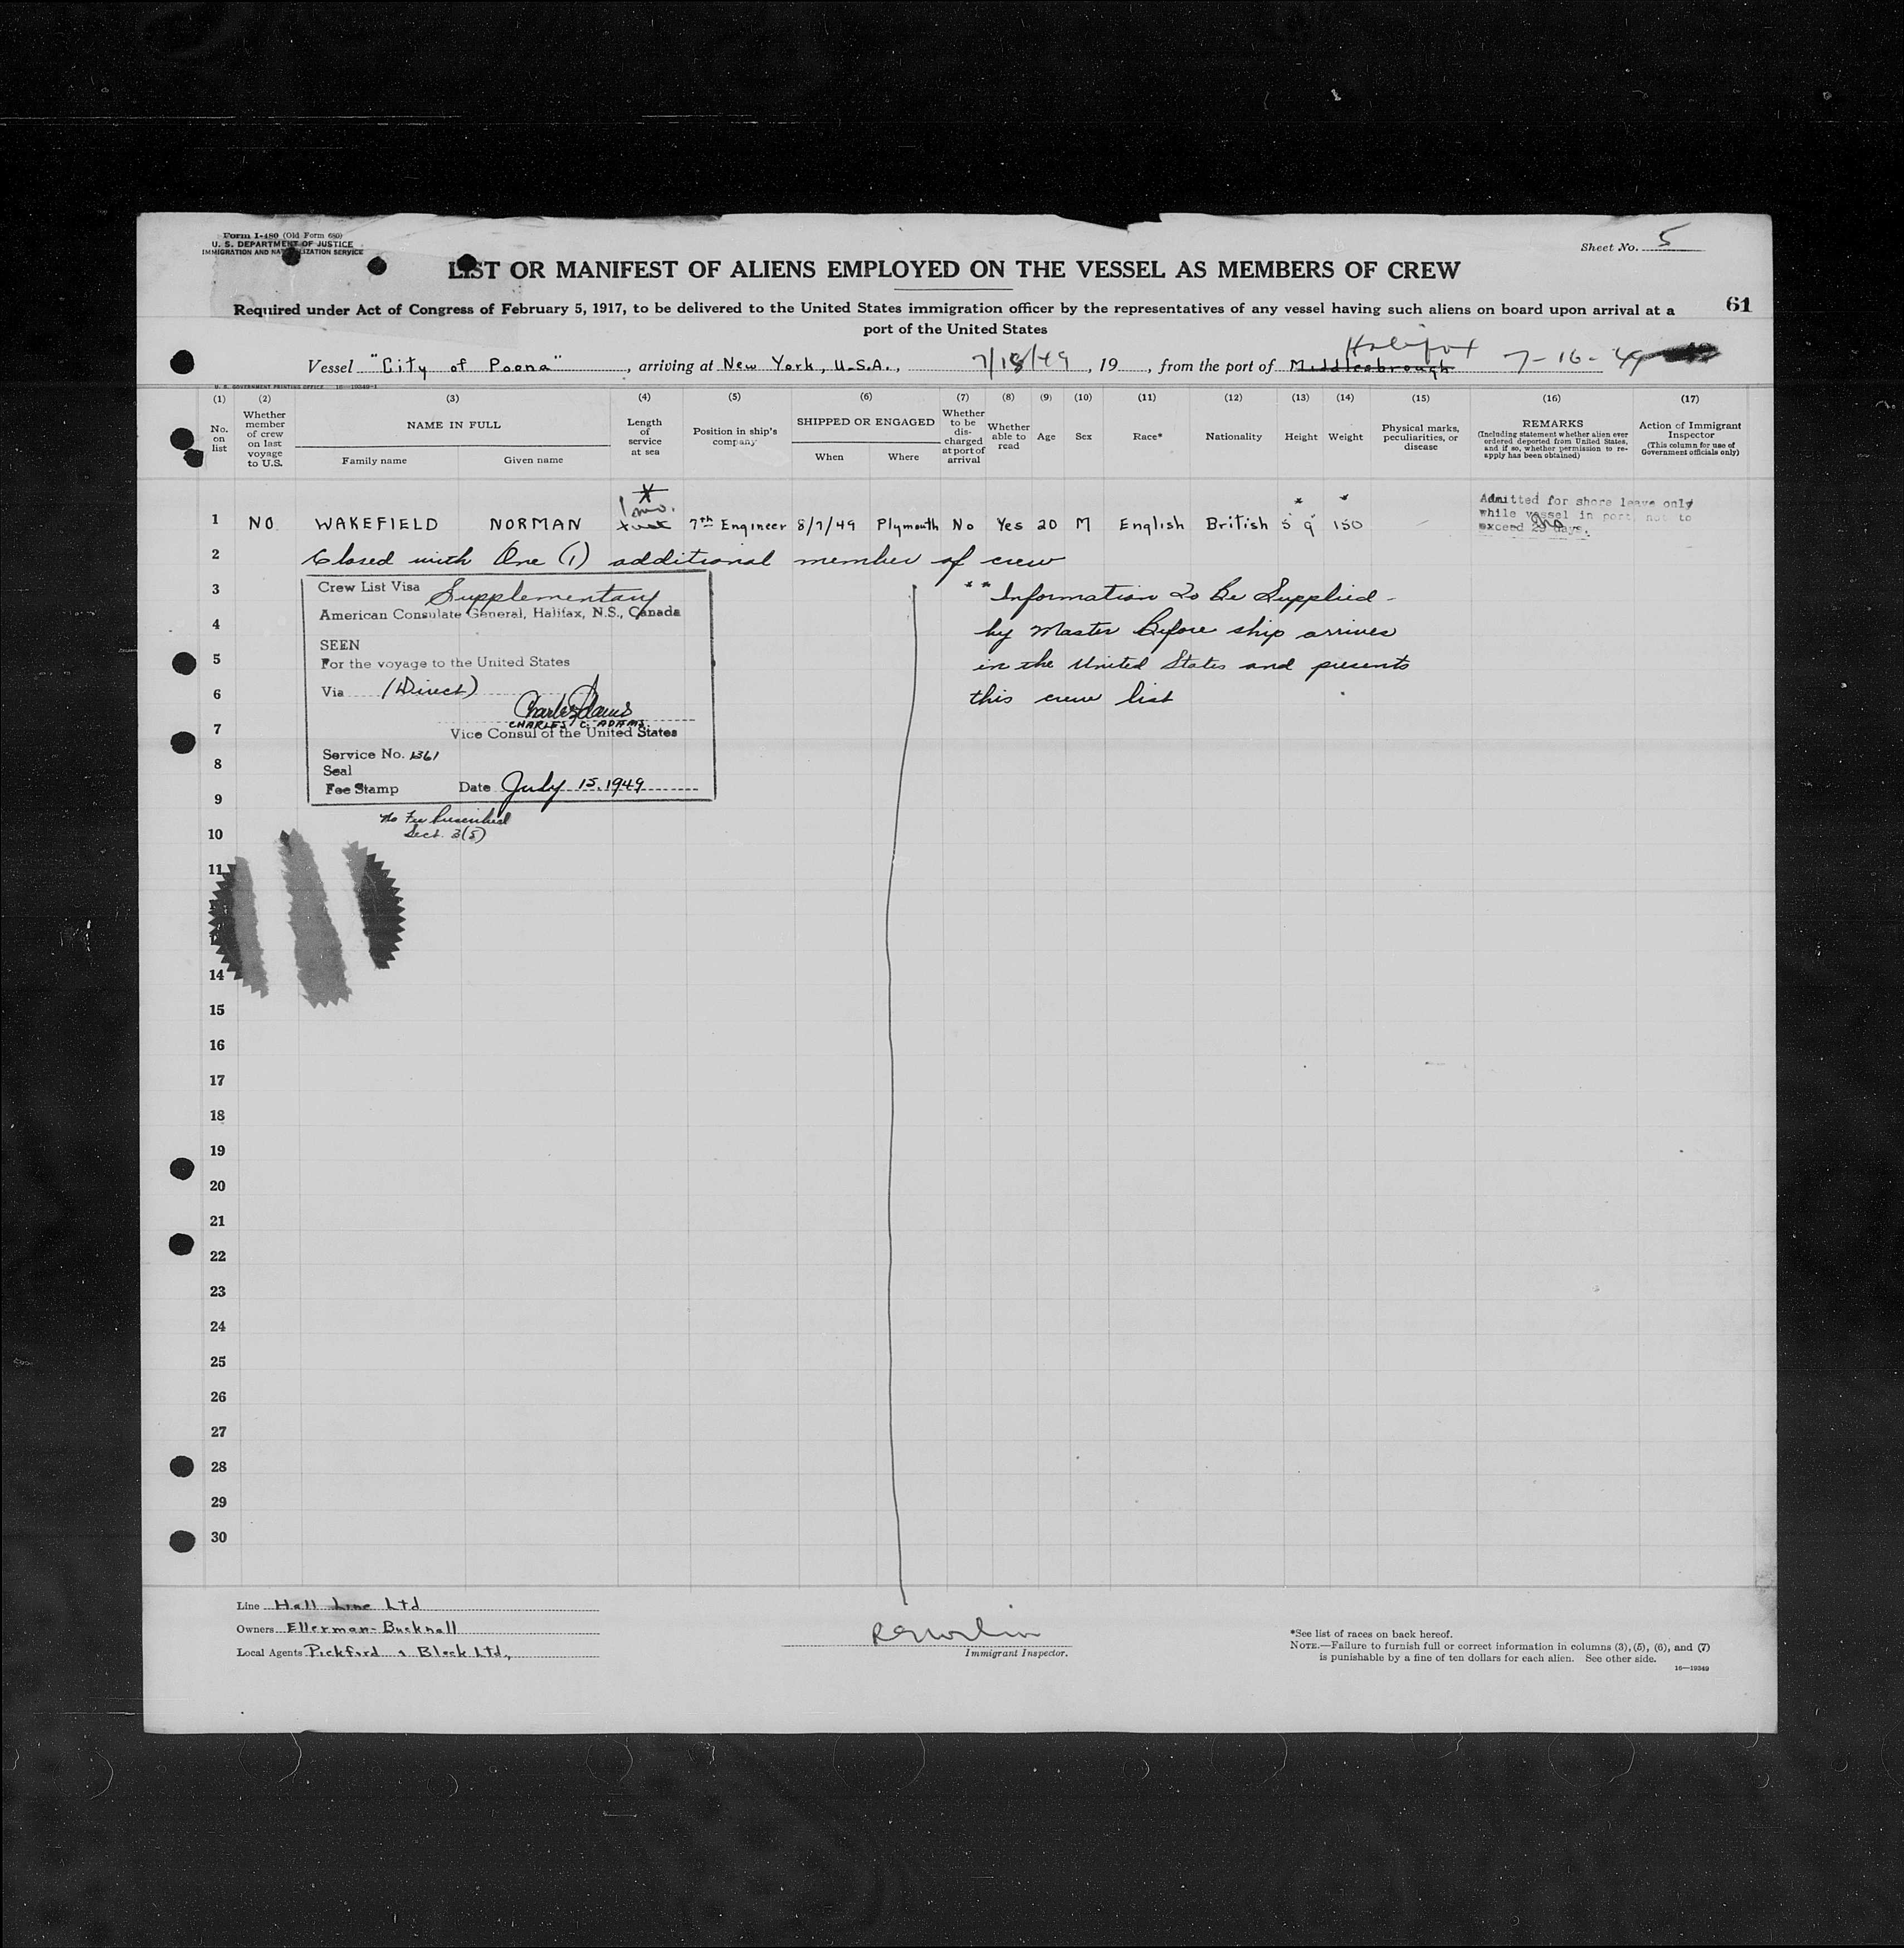 Form I-480 (Old Form 680)
U. S. DEPARTMENT OF JUSTICE
IMMIGRATION AND NATURALIZATION SERVICE
Sheet No. 5
LIST OR MANIFEST OF ALIENS EMPLOYED ON THE VESSEL AS MEMBERS OF CREW
61
Required under Act of Congress of February 5, 1917, to be delivered to the United States immigration officer by the representatives of any vessel having such aliens on board upon arrival at a
port of the United States
Halifax
Vessel "City of Poona", arriving at New York, U.S.A., 7/18/49, 19, from the port of Middlesbrough 7-16-49
U. S. GOVERNMENT PRINTING OFFICE 16—19349-1
(1) (2) (3) (4) (5) (6) (7) (8) (9) (10) (11) (12) (13) (14) (15) (16) (17)
No. on list
Whether member of crew on last voyage to U.S.
NAME IN FULL
Family name
Given name
Length of service at sea
Position in ship's company
SHIPPED OR ENGAGED
When
Where
Whether to be discharged at port of arrival
Whether able to read
Age
Sex
Race*
Nationality
Height
Weight
Physical marks, peculiarities, or disease
REMARKS
(Including statement whether alien ever ordered deported from United States, and if so, whether permission to reapply has been obtained)
Action of Immigrant Inspector
(This column for use of Government officials only)
* 1 mo.
* *
1 NO. WAKEFIELD NORMAN 7th Engineer 8/7/49 Plymouth No Yes 20 M English British 5' 9" 150 –
Admitted for shore leave only
while vessel in port, not to
exceed 29 days.
2 Closed with One (1) additional member of crew
3 Crew List Visa Supplementary
American Consulate General, Halifax, N.S., Canada
SEEN
For the voyage to the United States
Via (Direct)
CHARLES C. ADAMS
Vice Consul of the United States
Service No. 1361
Seal
Fee Stamp Date July 15, 1949
No Fee Prescribed
Sect. 3(5)
** Information To Be Supplied -
by Master Before ship arrives
in the United States and presents
this crew list
4
5
6
7
8
9
10
11
14
15
16
17
18
19
20
21
22
23
24
25
26
27
28
29
30
Line Hall Line Ltd
Owners Ellerman-Bucknall
Local Agents Pickford & Black Ltd.,
Immigrant Inspector.
*See list of races on back hereof.
NOTE.—Failure to furnish full or correct information in columns (3), (5), (6), and (7)
is punishable by a fine of ten dollars for each alien. See other side.
16—19349